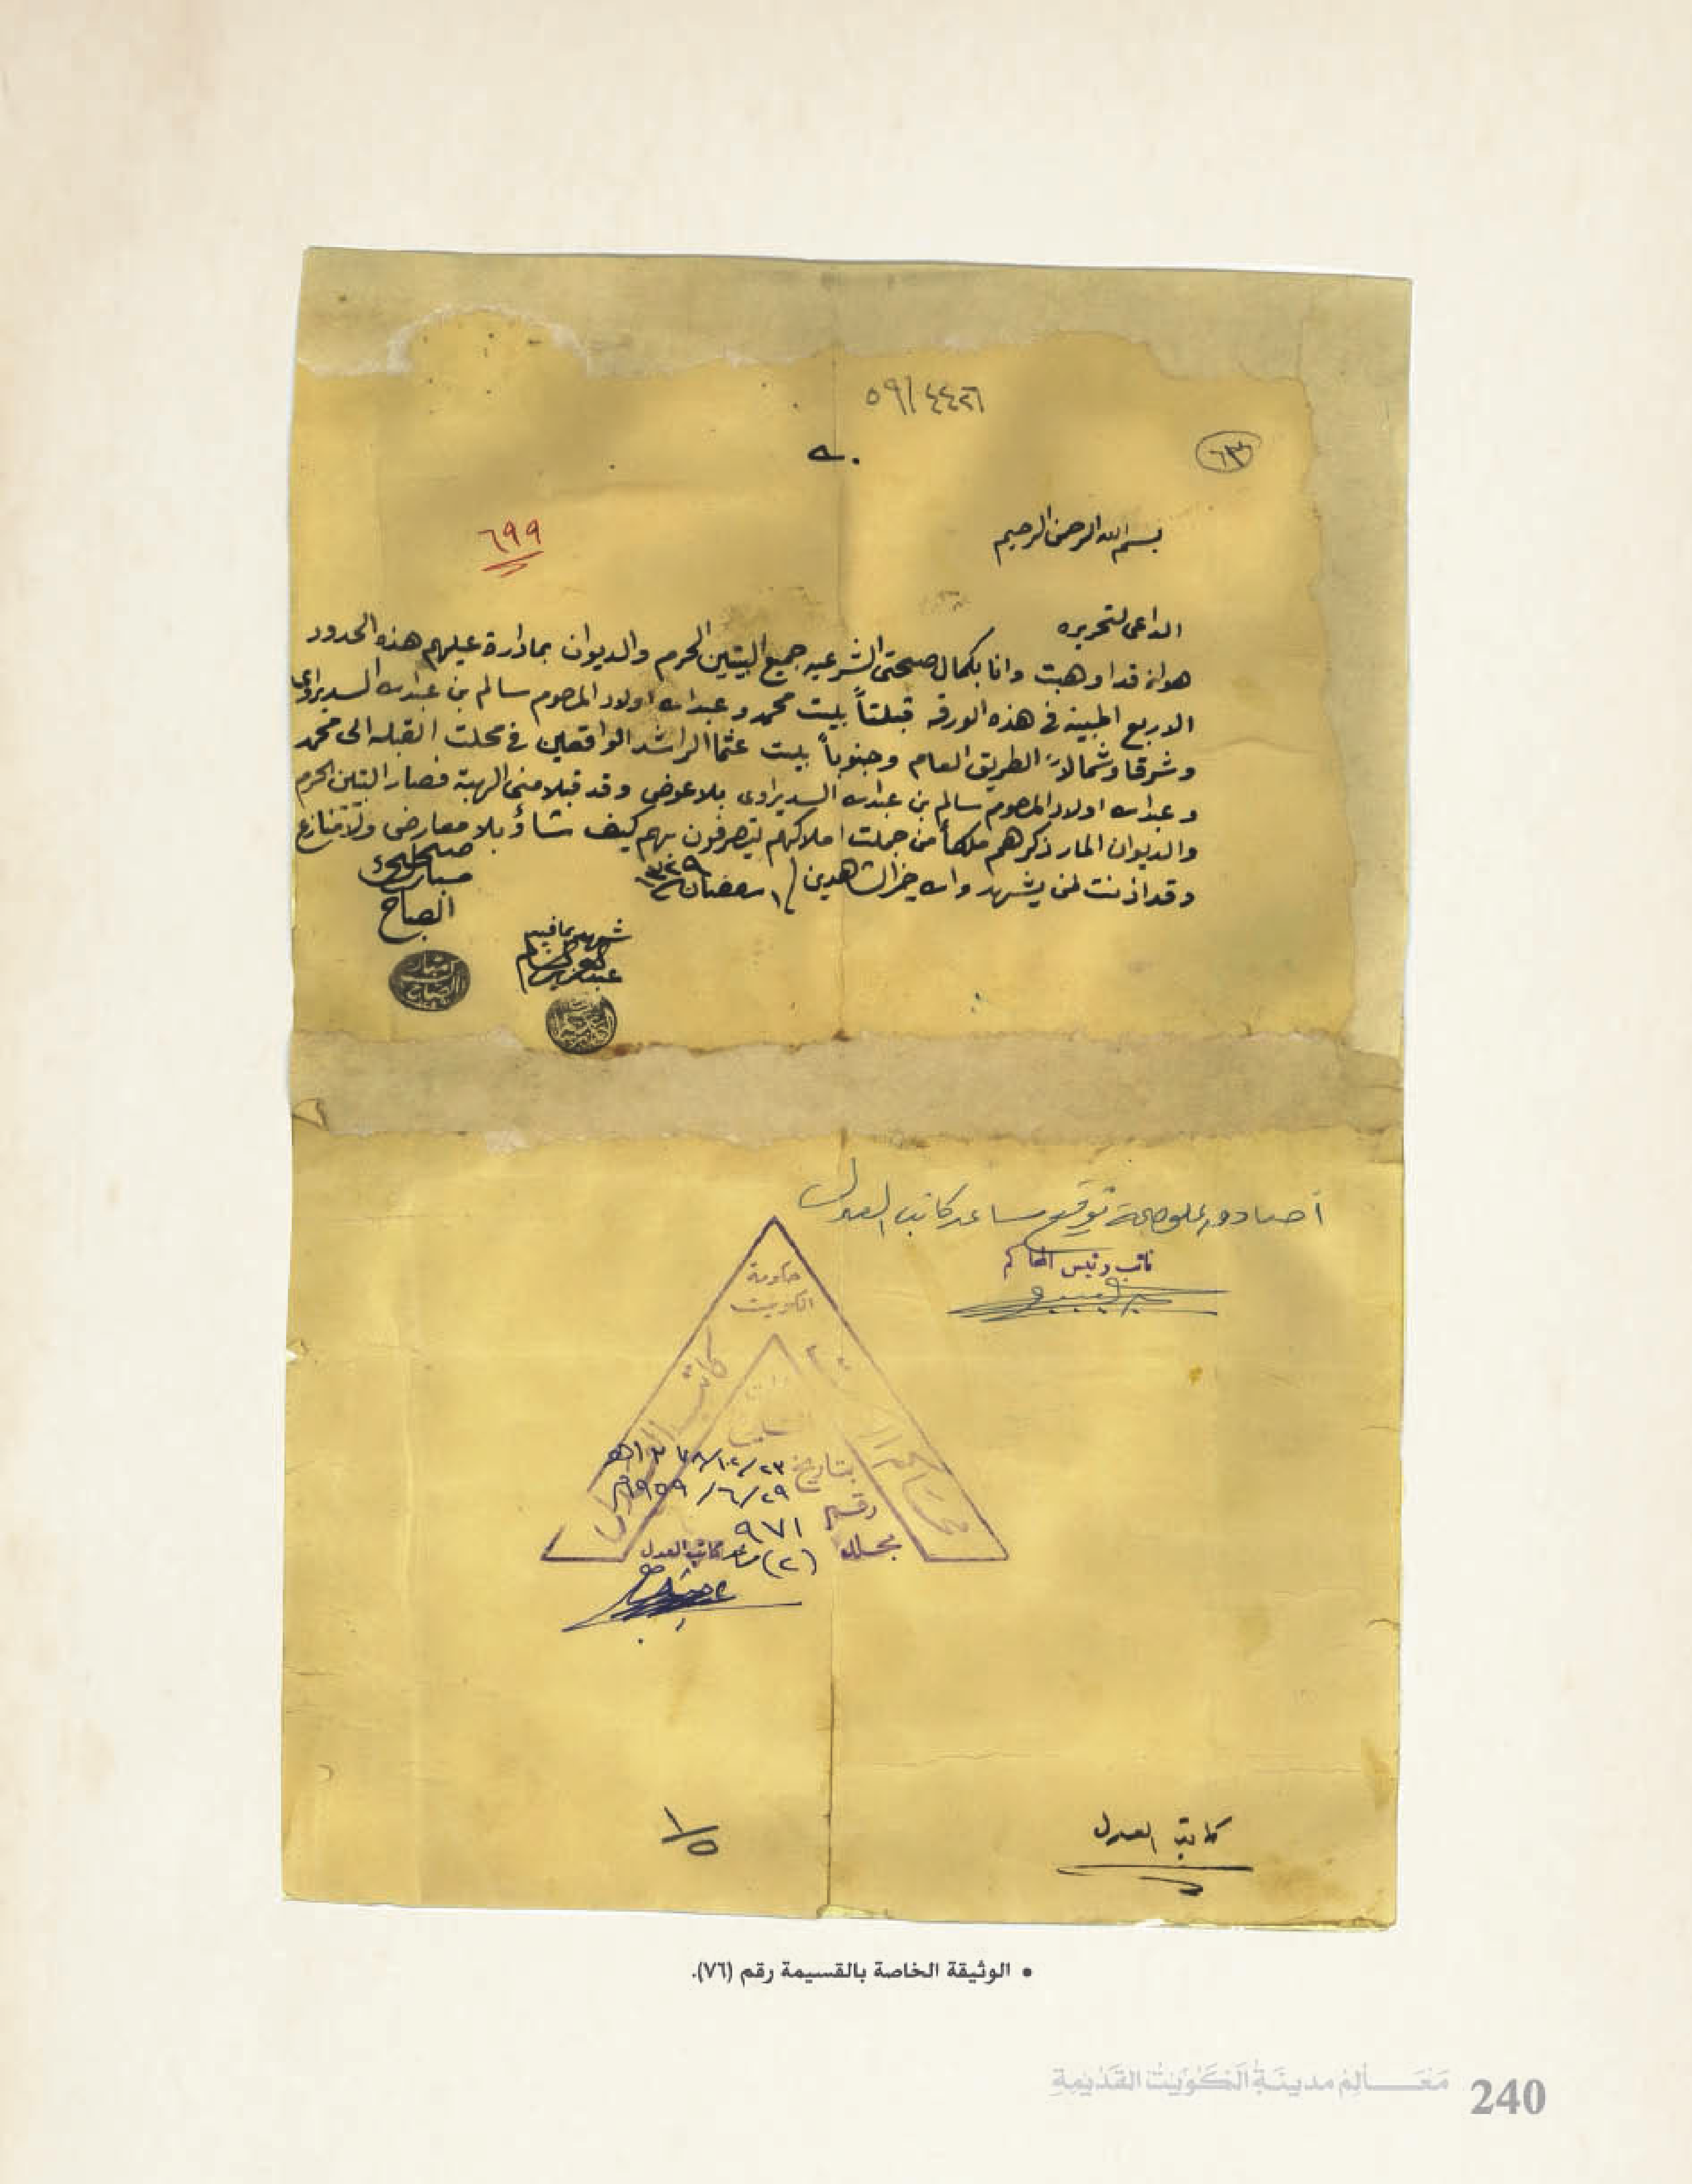 ٥٩/٤٤٢٦
٦٣
٦٩٩
بسم الله الرحمن الرحيم
الداعي لتحريره
هو انه قد اوهبت وانا بكمال صحتي الشرعيه جميع البيتين الحرم والديوان بمادارة عليهم هذه الحدود
الاربع المبينه في هذه الورقه قبلتاً بيت محمد و عبدالله اولاد المرحوم سالم بن عبدالله السديراوي
وشرقا وشمالاً الطريق العام وجنوباً بيت عثمان الراشد الواقعين في محلت القبله الى محمد
و عبدالله اولاد المرحوم سالم بن عبدالله السديراوي بلا عوض وقد قبلا مني الهبة فصار البيتين الحرم
والديوان المار ذكرهم ملكاً من جملت املاكهم يتصرفون بهم كيف شاؤ بلا معارض ولا منازع
وقد اذنت لمن يشهد والله خير الشاهدين ١ رمضان ١٣٢٩
صحيح
مبارك
الصباح
شهد بما فيه
أصادق على صحة توقيع مساعد كاتب العدل
نائب رئيس المحاكم
حكومة
الكويت
كاتب
بتاريخ ٢٣/١٢/١٣٧٨هـ
٢٩/٦/١٩٥٩م
رقم ٩٧١
مجلد (٢) مساعد كاتب العدل
١/٥
كاتب العدل
• الوثيقة الخاصة بالقسيمة رقم (٧٦).
مَعَالِمُ مدينَةِ الكُوَيْتْ القَدْيمةِ 240